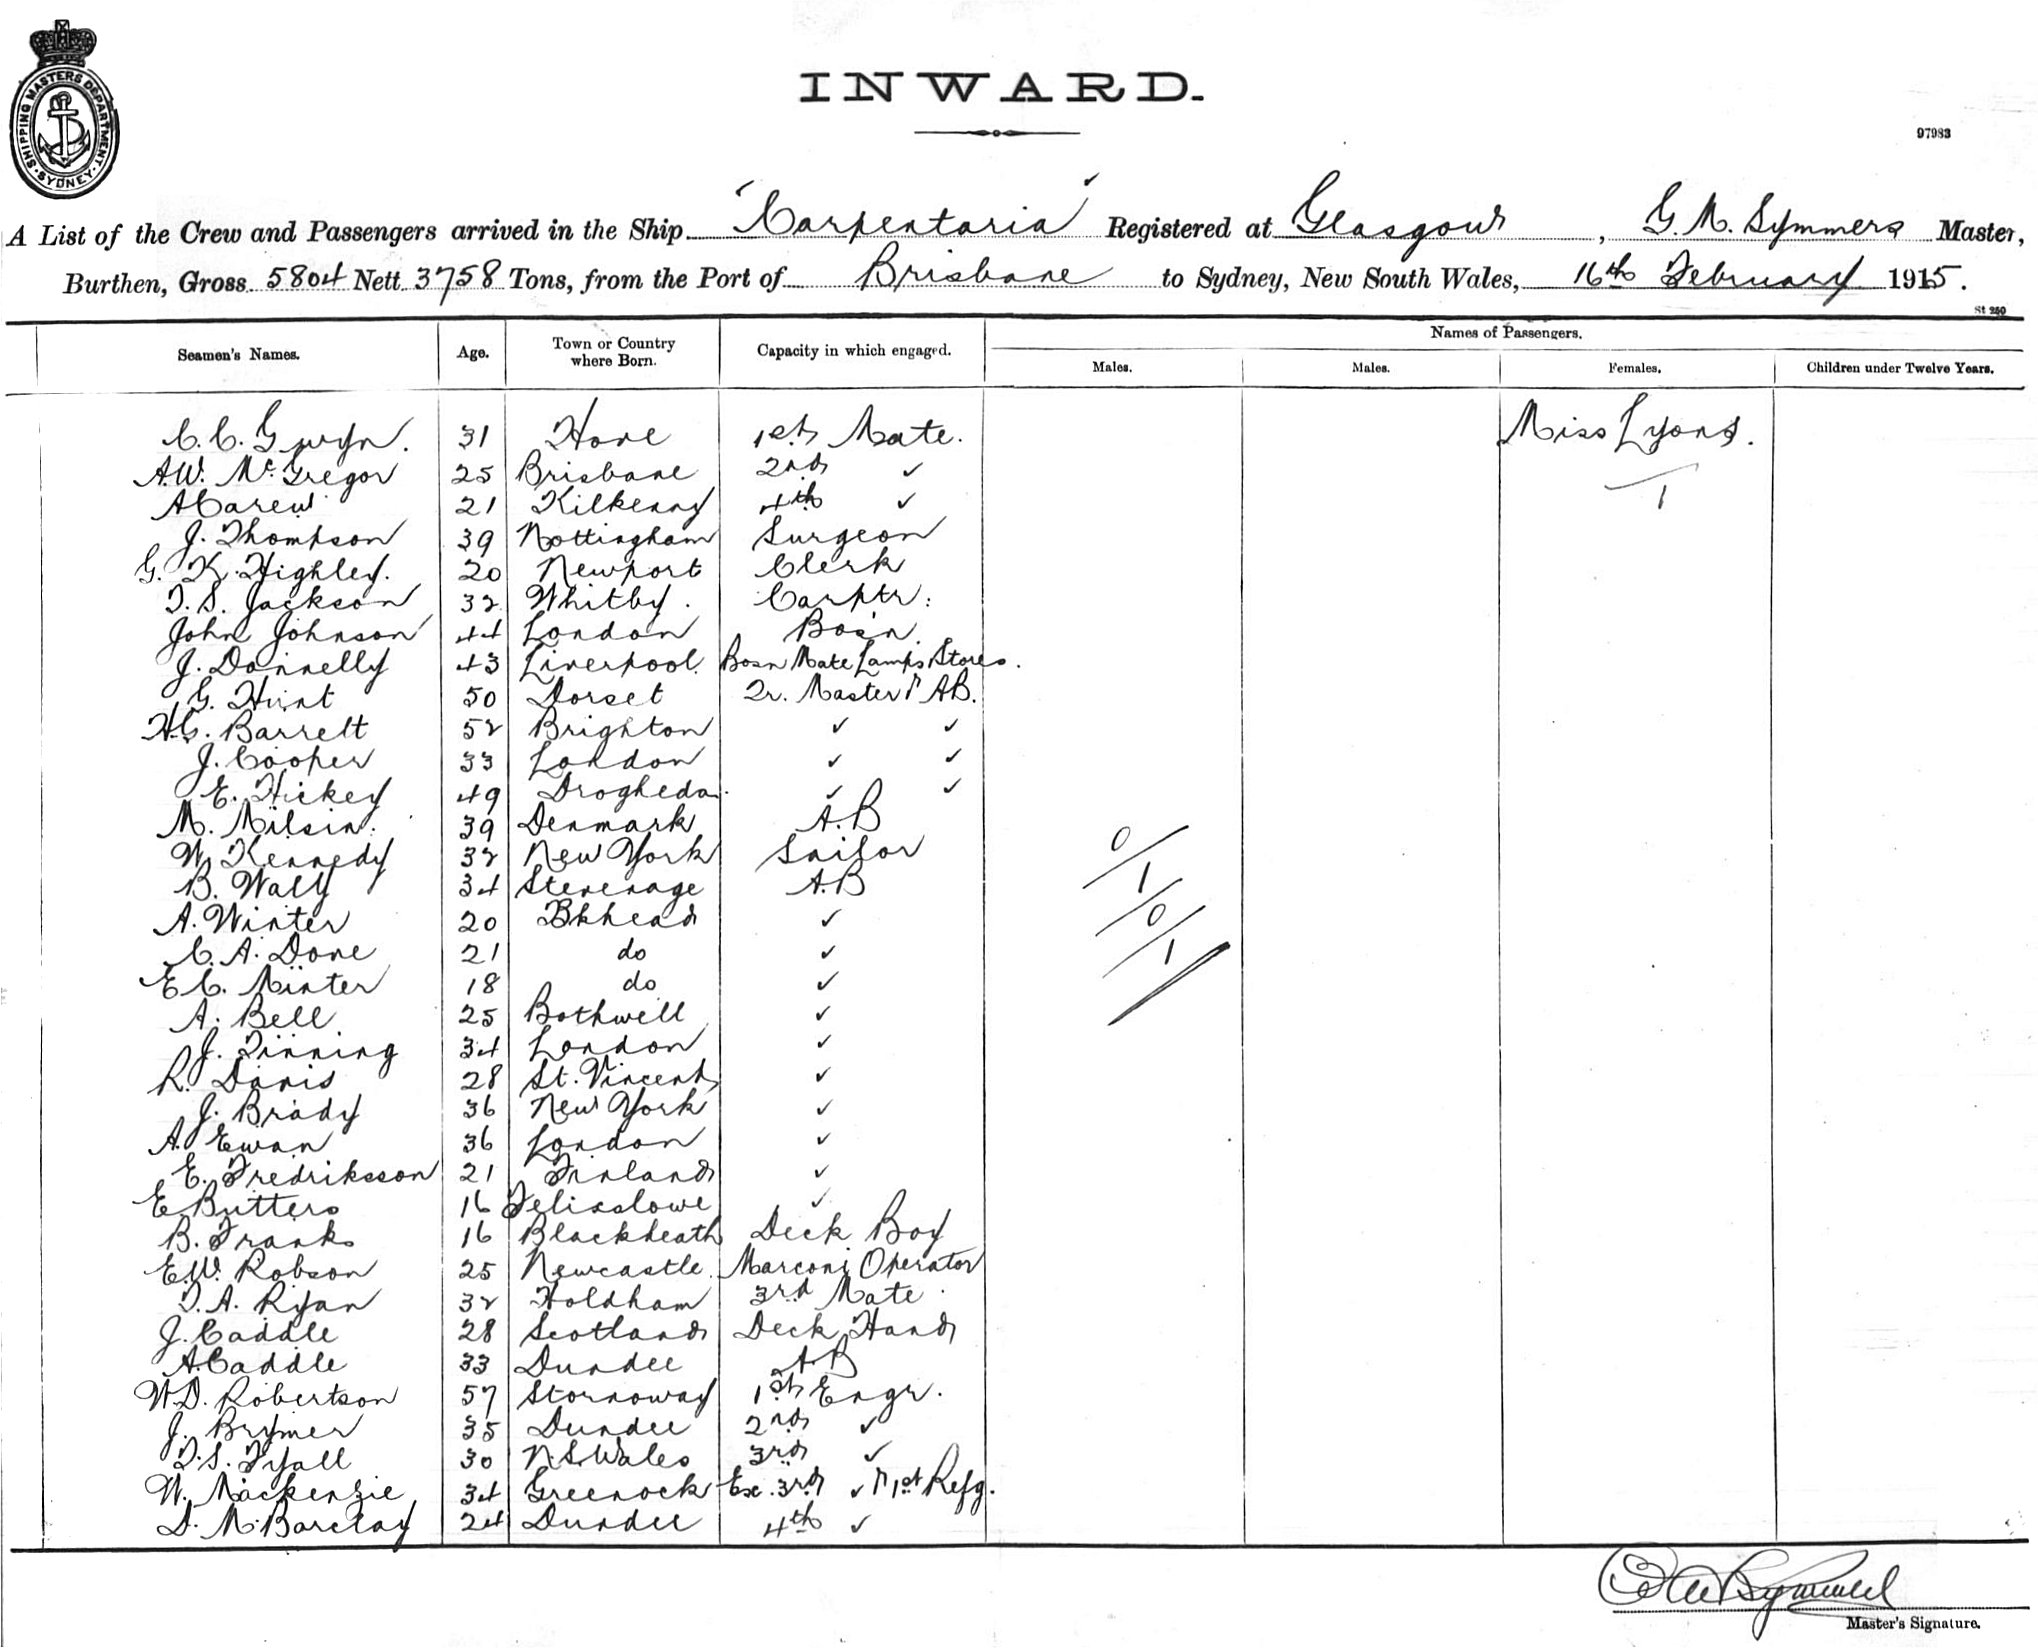 SHIPPING MASTERS DEPARTMENT
SYDNEY
INWARD.
97983
A List of the Crew and Passengers arrived in the Ship "Carpentaria" Registered at Glasgow, G. M. Symmers Master,
Burthen, Gross 5804 Nett 3758 Tons, from the Port of Brisbane to Sydney, New South Wales, 16th February 1915.
St 250
Seamen's Names. Age. Town or Country where Born. Capacity in which engaged. Names of Passengers.
Males. Males. Females. Children under Twelve Years.
C. C. Gwyn. 31 Hove 1st Mate. Miss Lyons.
A.W. McGregor 25 Brisbane 2nd ✓
1
A Carew 21 Kilkenny 4th ✓
J. Thompson 39 Nottingham Surgeon
G. K. Highley. 20 Newport Clerk
T. S. Jackson 32 Whitby. Carptr:
John Johnson 44 London Bosn.
J. Donnelly 43 Liverpool. Bosn Mate Lamps Stores.
G. Hunt 50 Dorset Qr. Master & AB.
H.C. Barrett 52 Brighton ✓ ✓
J. Cooper 33 London ✓ ✓
E. Hickey 49 Drogheda. ✓ ✓
M. Milsin. 39 Denmark A.B
W. Kennedy 32 New York Sailor 0/1
B. Wall 34 Stevenage A.B
A. Winter 20 Bkhead ✓ 0/1
C. A. Done 21 do ✓
E C. Minter 18 do ✓
A. Bell 25 Bothwell ✓
J. Tinning 34 London ✓
R. Davis 28 St. Vincent ✓
J. Brady 36 New York ✓
A. Ewan 36 London ✓
E. Fredriksson 21 Finland ✓
E Butters 16 Felixstowe ✓
B. Franks 16 Blackheath Deck Boy
E.W. Robson 25 Newcastle. Marconi Operator
T. A. Ryan 32 Holdham 3rd Mate.
J. Caddle 28 Scotland Deck Hand
A. Caddle 33 Dundee A.B
W.D. Robertson 57 Stornoway 1st Engr.
J. Brymer 35 Dundee 2nd ✓
T. S. Fyall 30 N.S. Wales 3rd ✓
W. Mackenzie 34 Greenock Ex. 3rd ✓ & 1st Refg.
D. M. Barclay 24 Dundee 4th ✓
Master's Signature.